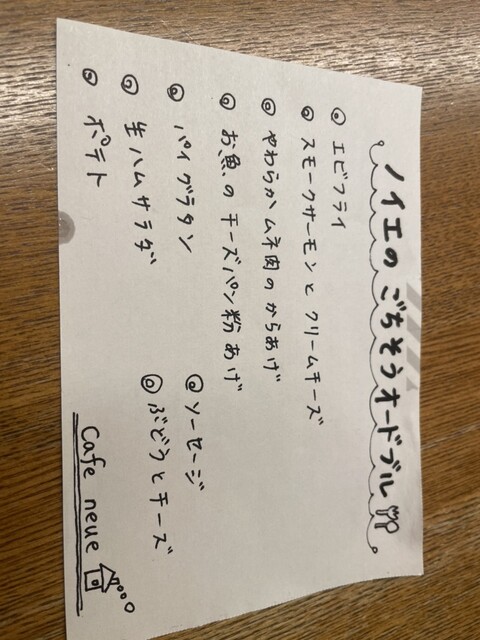 ノイエのごちそうオードブル
◎ エビフライ
◎ スモークサーモンとクリームチーズ
◎ やわらかムネ肉のからあげ
◎ お魚のチーズパン粉あげ
◎ パイグラタン
◎ ソーセージ
◎ 生ハムサラダ
◎ ぶどうとチーズ
◎ ポテト
Cafe neue